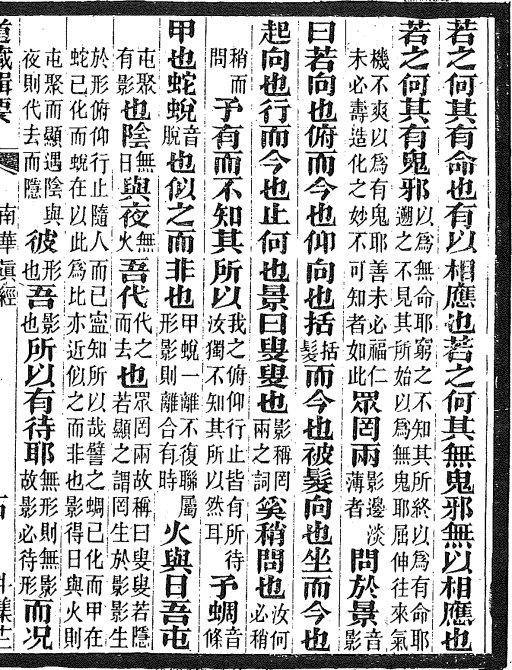 若之何其有命也有以相應也若之何其無鬼邪無以相應也
若之何其有鬼邪以爲無命耶窮之不知其所終以爲有命耶遡之不見其所始以爲無鬼耶屈伸往來氣
機不爽以爲有鬼耶善未必福仁未必壽造化之妙不可知者如此眾罔兩影邊淡薄者問於景音影
曰若向也俯而今也仰向也括括髮而今也被髮向也坐而今也
起向也行而今也止何也景曰叟叟也影稱罔兩之詞奚稍問也汝何必稍
稍而問予有而不知其所以我之俯仰行止皆有所待汝獨不知其所以然耳予蜩音條
甲也蛇蛻音脫也似之而非也甲蛻一離不復聯屬形影則離合有時火與日吾屯
屯聚有影也陰無日與夜無火吾代代之而去也眾罔兩故稱曰叟叟若隱若顯之謂罔生於影影生
於形俯仰行止隨人而已寍知所以哉譬之蜩已化而甲在蛇已化而蛻在以此為比亦近似之而非也影得日與火則
屯聚而顯遇陰與夜則代去而隱彼形也吾影也所以有待耶無形則無影故影必待形而况
道藏輯要 南華眞經